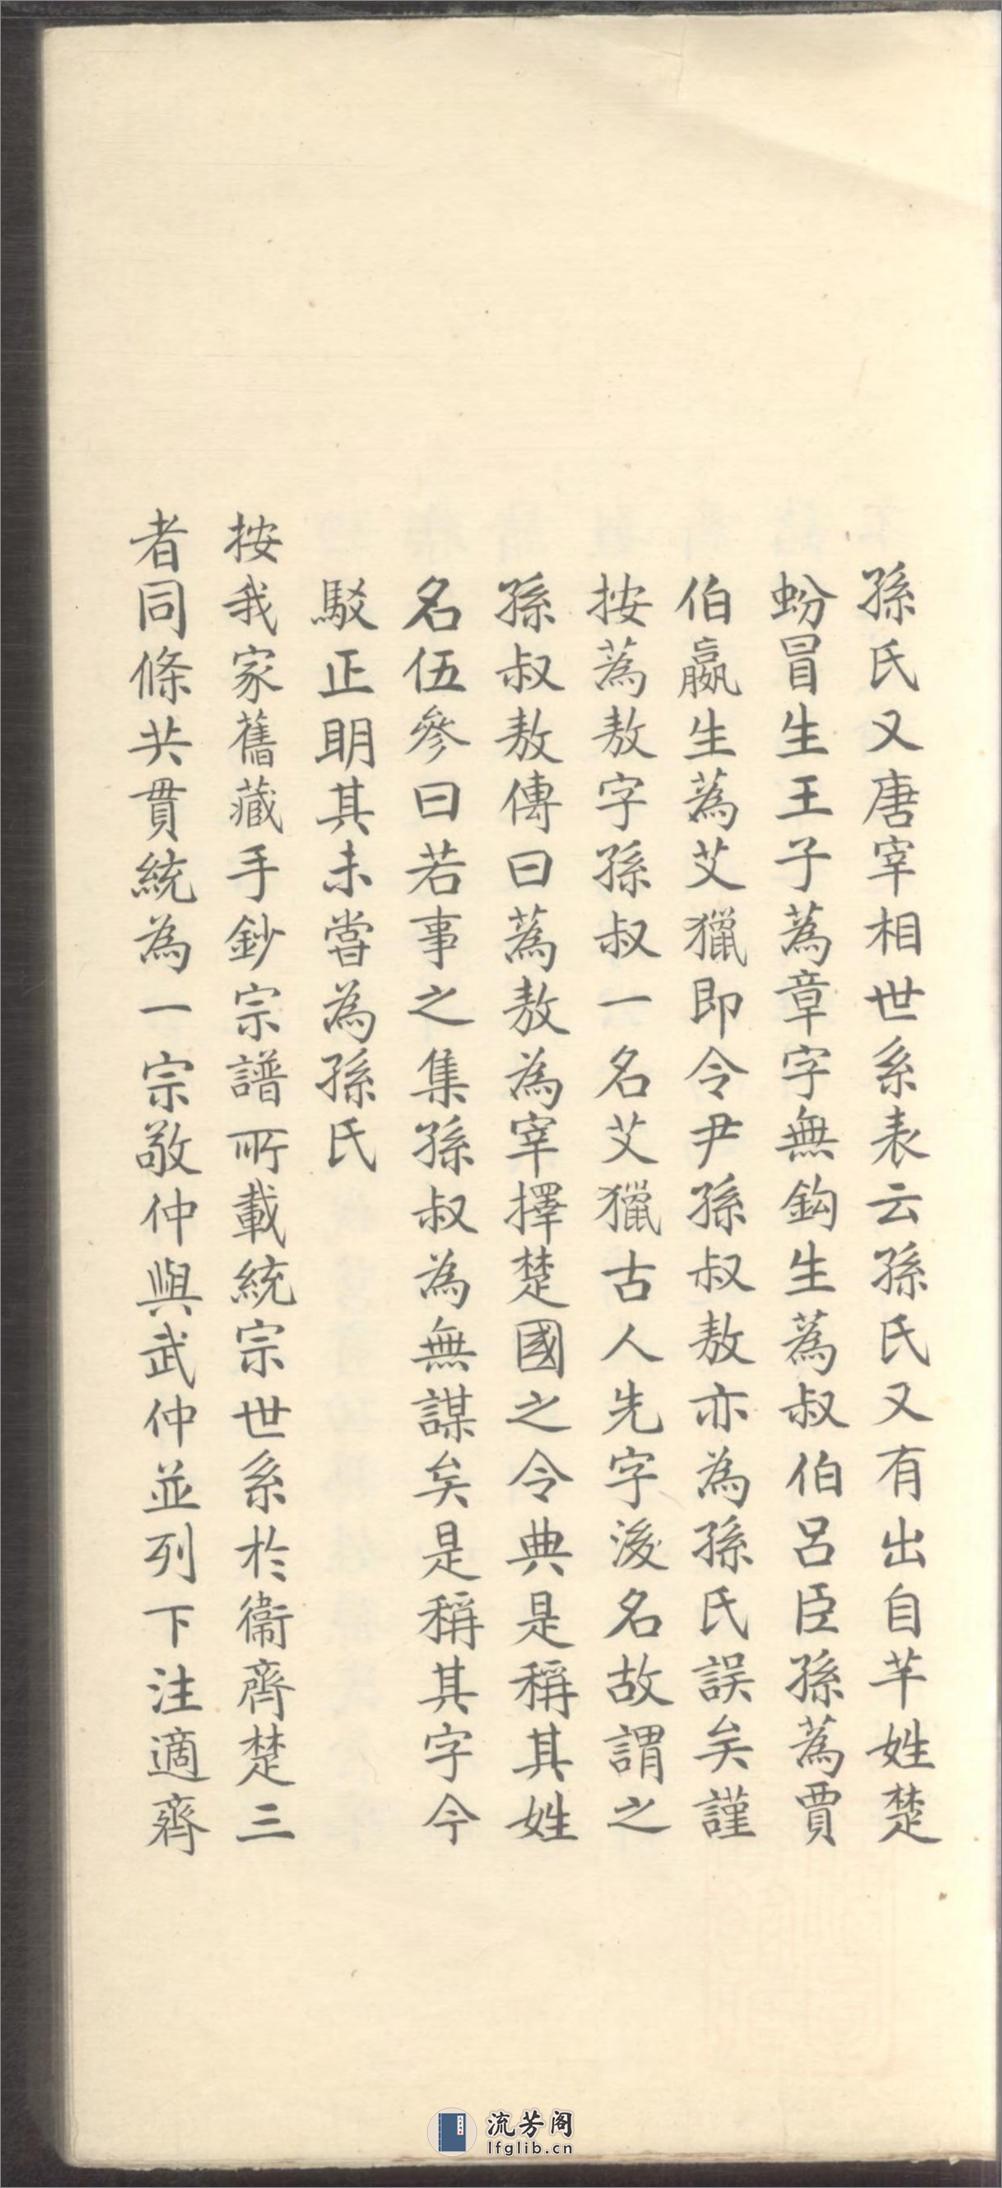 孫氏又唐宰相世系表云孫氏又有出自芊姓楚
蚡冒生王子蒍章字無鈎生蒍叔伯呂臣孫蒍賈
伯嬴生蒍艾獵即令尹孫叔敖亦為孫氏誤矣謹
按蒍敖字孫叔一名艾獵古人先字後名故謂之
孫叔敖傳曰蒍敖為宰擇楚國之令典是稱其姓
名伍參曰若事之集孫叔為無謀矣是稱其字今
駁正明其未嘗為孫氏
按我家舊藏手鈔宗譜所載統宗世系於衞齊楚三
者同條共貫統為一宗敬仲與武仲並列下注適齊
流芳阁
lfglib.cn